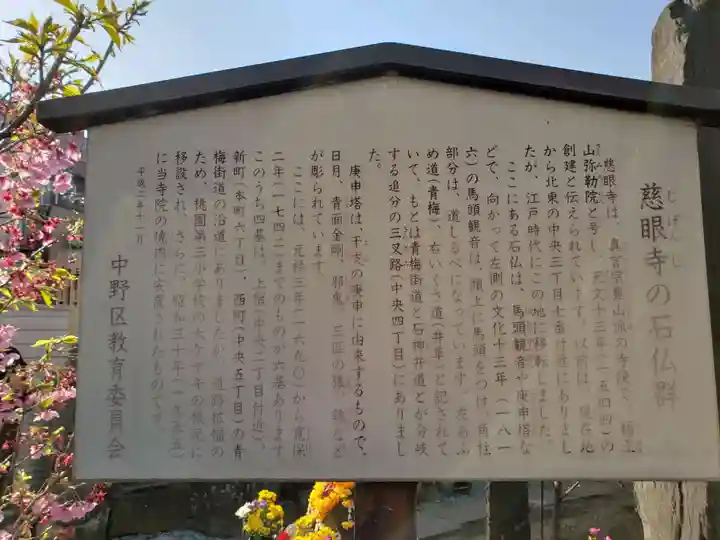 じげんじ
慈眼寺の石仏群
慈眼寺は、真言宗豊山派の寺院で、
山弥勒院と号し、天文十三年(一五四四)の
創建と伝えられています。以前は、現在地
から北東の中央三丁目七番付近にありまし
たが、江戸時代にこの地に移転しました。
ここにある石仏は、馬頭観音や庚申塔な
どで、向かって左側の文化十三年(一八一
六)の馬頭観音は、頭上に馬頭をつけ、角柱
部分は、道しるべになっています。左あふ
め道(青梅)、右いくさ道(井草)と記されて
いて、もとは青梅街道と石神井道とが分岐
する追分の三叉路(中央四丁目)にありまし
た。
庚申塔は、干支の庚申に由来するもので、
日月、青面金剛、邪鬼、三匹の猿、鶏など
が彫られています。
ここには、元禄三年(一六九〇)から寛保
二年(一七四二)までのものが六基あります
このうち四基は、上宿(中央二丁目付近)、
新町(本町六丁目)、西町(中央五丁目)の青
梅街道の沿道にありましたが、道路拡幅の
ため、桃園第三小学校の大ケヤキの根元に
移設され、さらに、昭和三十年(一九五五)
に当寺院の境内に安置されたものです。
平成二年十一月
中野区教育委員会